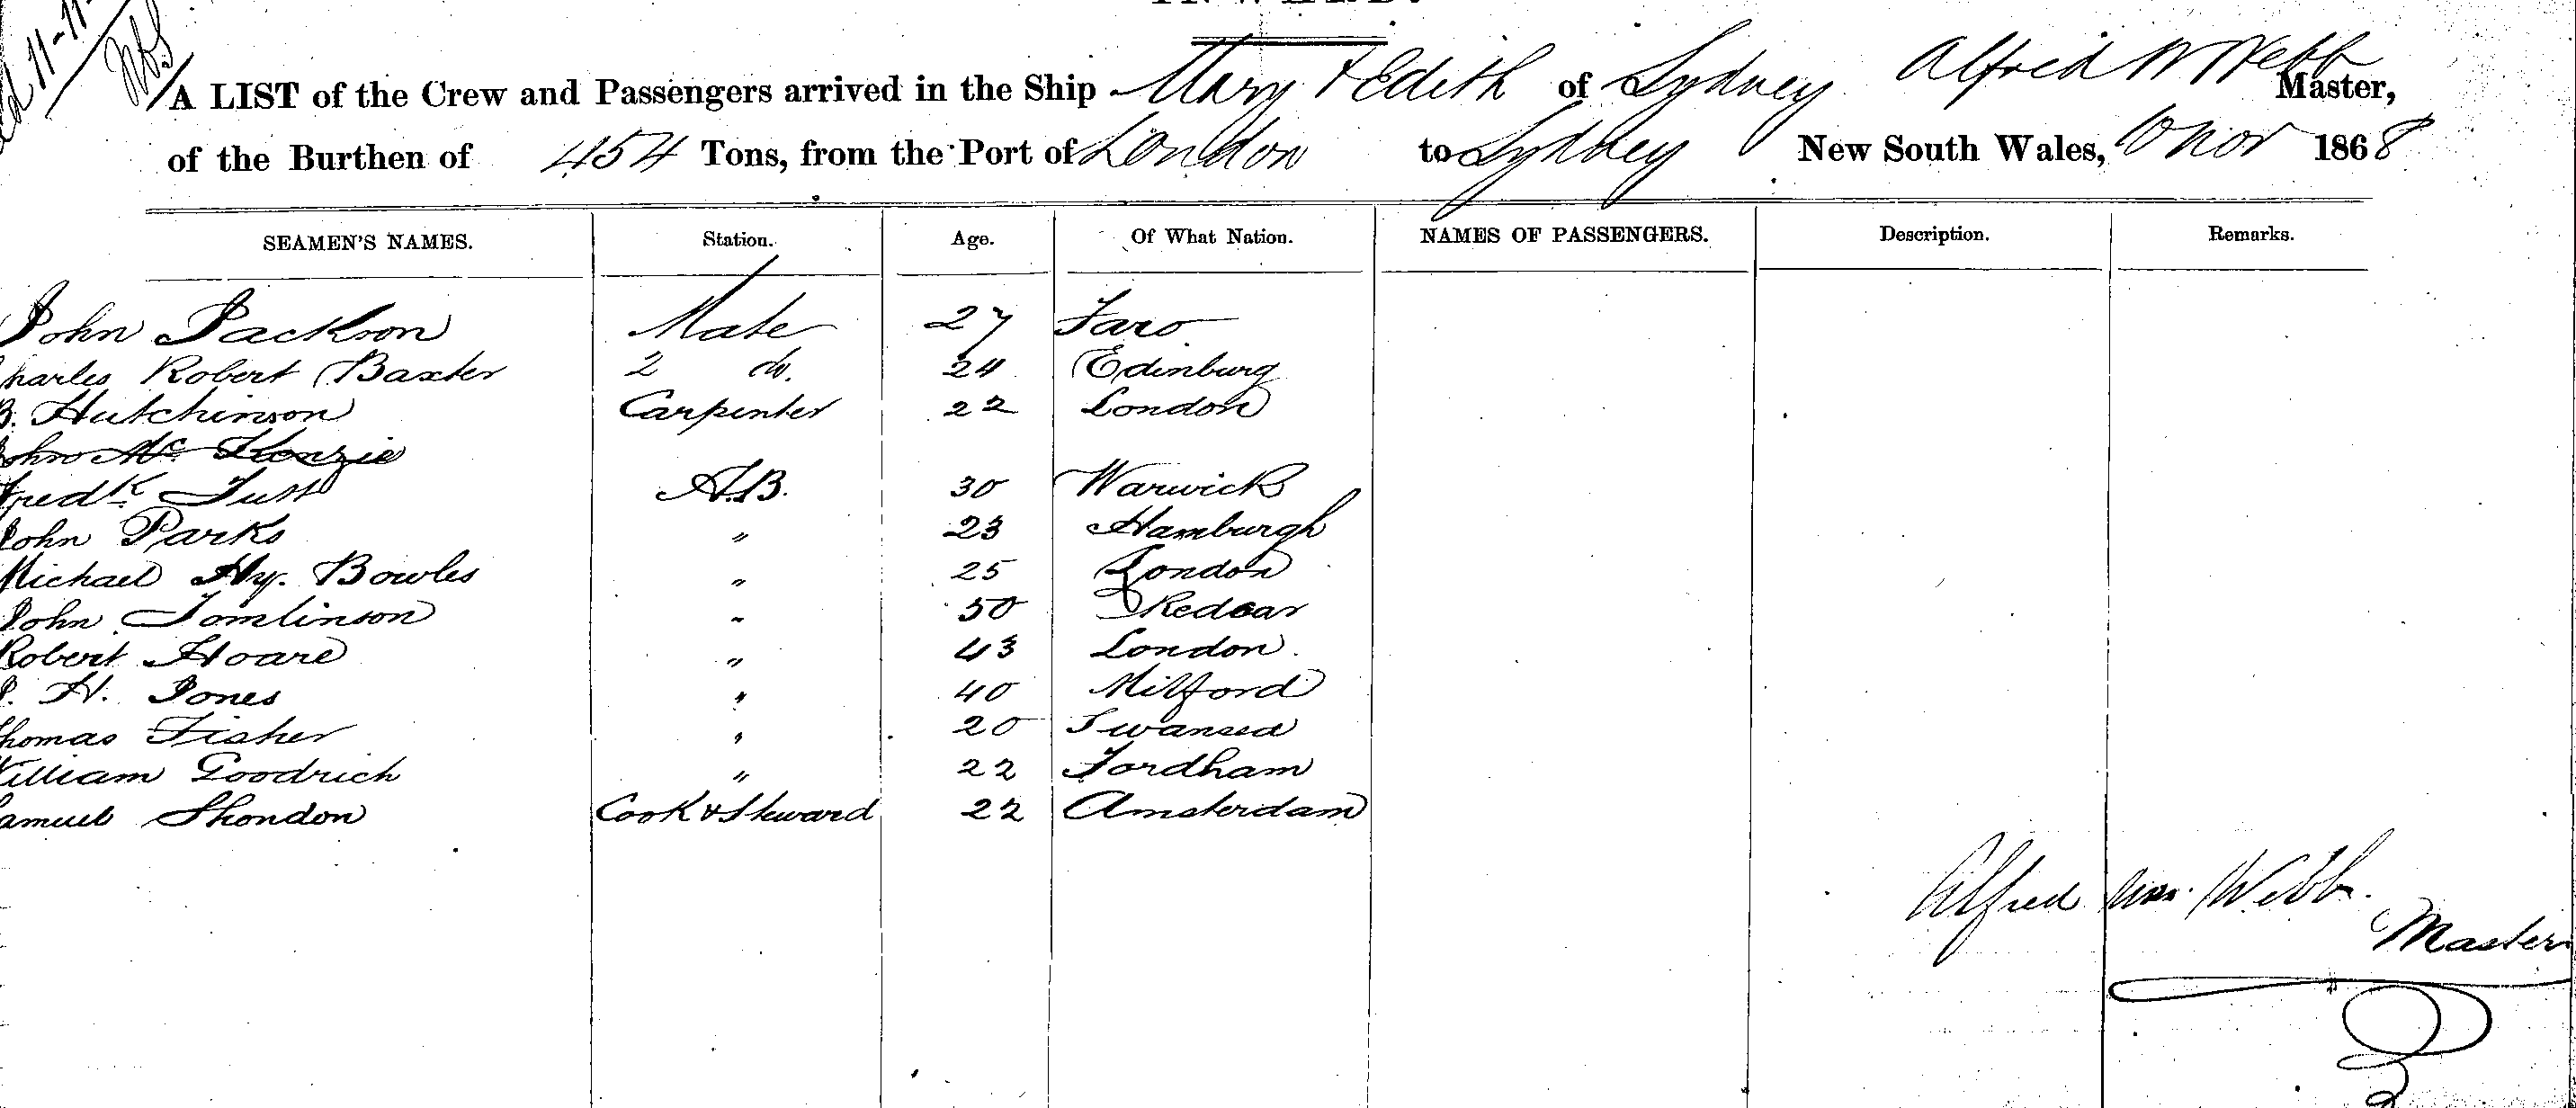 A LIST of the Crew and Passengers arrived in the Ship Mary & Edith of Sydney Alfred W Webb Master,
of the Burthen of 454 Tons, from the Port of London to Sydney New South Wales, 10 Nov 1868
SEAMEN'S NAMES. Station. Age. Of What Nation. NAMES OF PASSENGERS. Description. Remarks.
John Jackson Mate 27 Faro
Charles Robert Baxter 2 do. 24 Edinburg
B. Hutchinson Carpenter 22 London
John Mc Kenzie
Fredk Just A.B. 30 Warwick
John Parks " 23 Hamburgh
Michael Hy. Bowles " 25 London
John Tomlinson " 50 Redcar
Robert Hoare " 43 London.
J. H. Jones " 40 Milford
Thomas Fisher " 20 Swansea
William Goodrich " 22 Fordham
Samuel Shondon Cook & Steward 22 Amsterdam
Alfred Wm. Webb.
Master